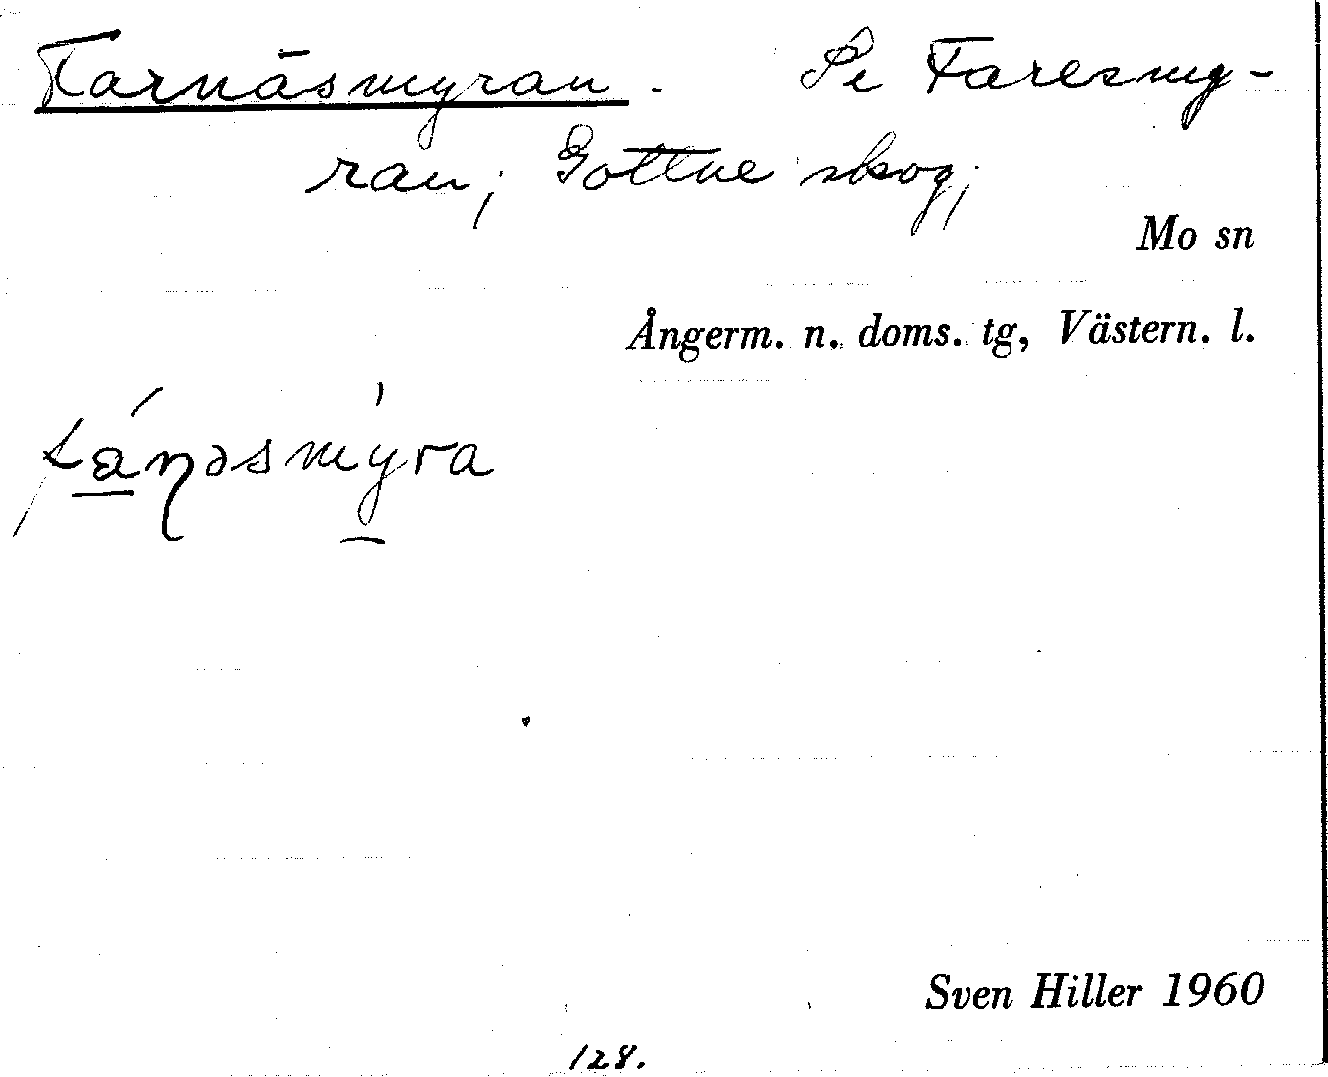 Farnäsmyran. Se Faresmy-
ran; Gottne skog;
Mo sn
Ångerm. n. doms. tg, Västern. l.
Sven Hiller 1960
128.